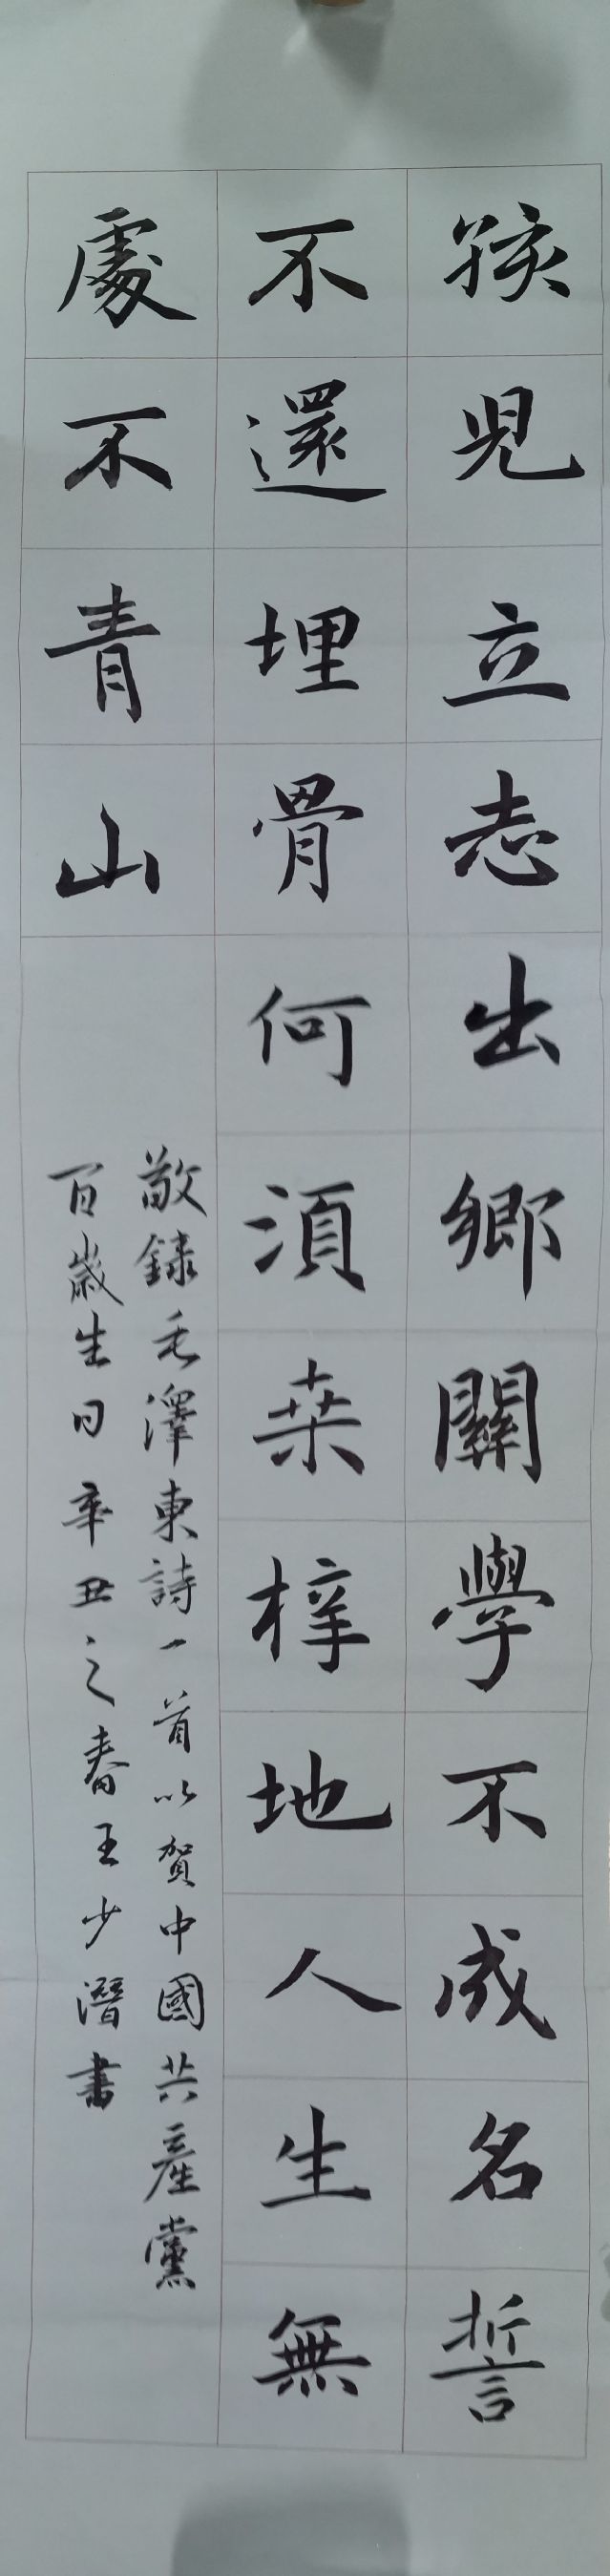 孩児立志出鄉關學不成名誓
不還埋骨何須桑梓地人生無
處不青山
敬録毛澤東詩一首以賀中國共產黨
百歲生日辛丑之春王少潛書